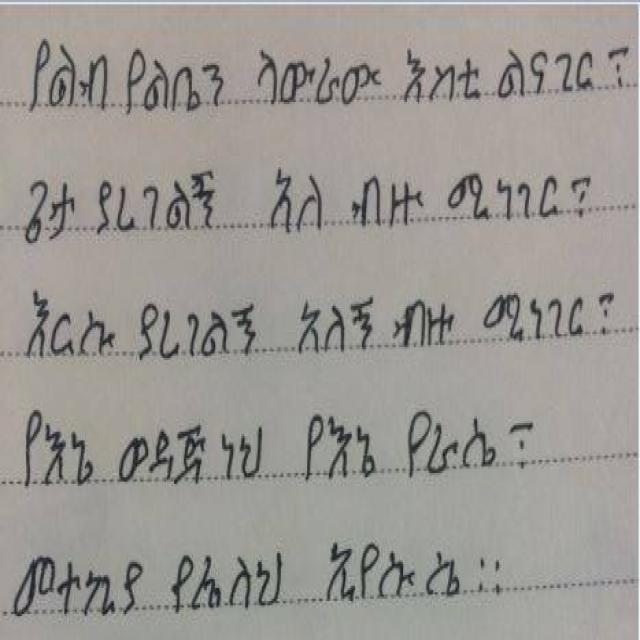 የልብ የልቤን ላውራው እስቲ ልናገር፣
ጌታ ያረገልኝ እለ ብዙ ሚነገር፣
እርሱ ያረገልኝ አለኝ ብዙ ሚነገር፣
የእኔ ወዳጅ ነህ የእኔ የራሴ፣
መተኪያ የሌለህ ኢየሱሴ።